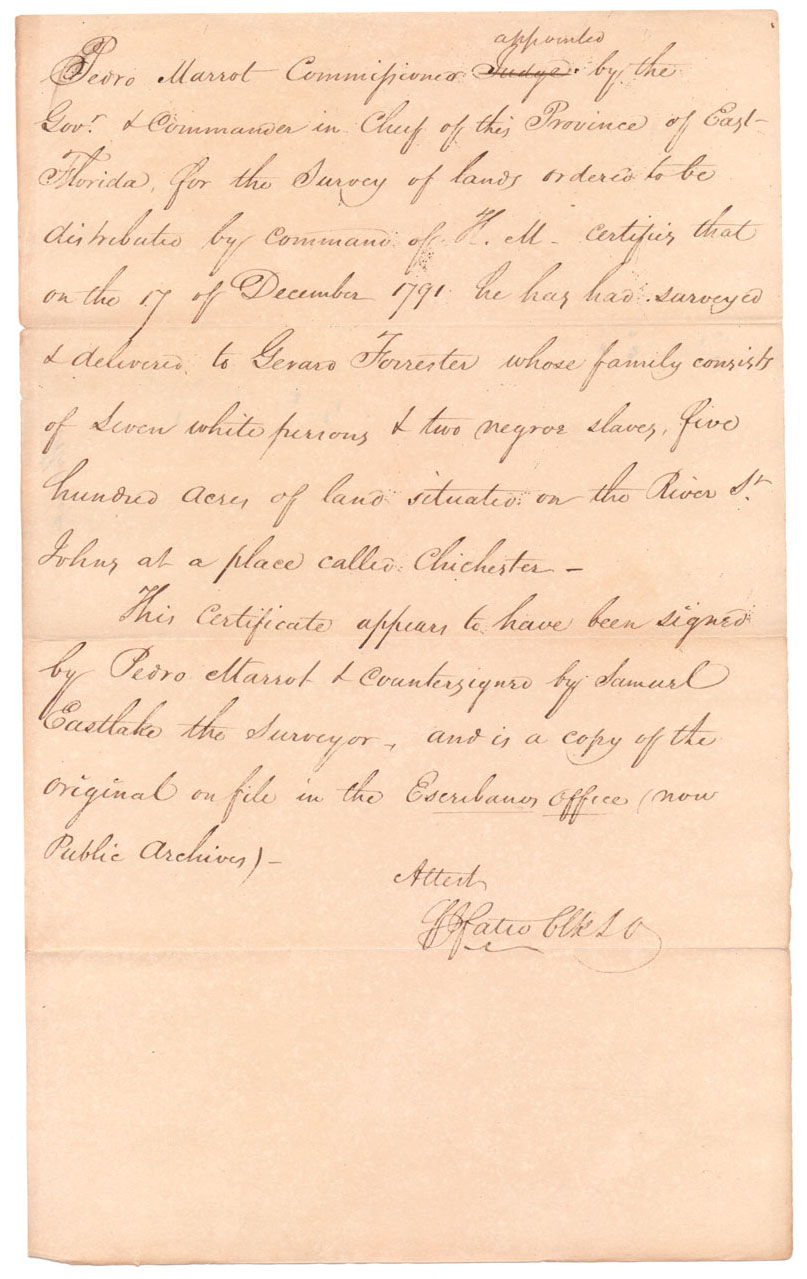 appointed
Pedro Marrot Commissioner Judge by the
Govr. & Commander in Cheif of this Province of East-
Florida, for the Survey of lands ordered to be
distributed by command of H. M- certifies that
on the 17 of December 1791 he has had surveyed
& delivered to Gerard Forrester whose family consists
of seven white persons & two negroe slaves, five
hundred acres of land situated on the River St.
Johns at a place called Chichester -
This Certificate appears to have been signed
by Pedro Marrot & countersigned by Samuel
Eastlake the Surveyor, and is a copy of the
original on file in the Escribanos office (now
Public Archives) -
Attest
Fatio Clk L O